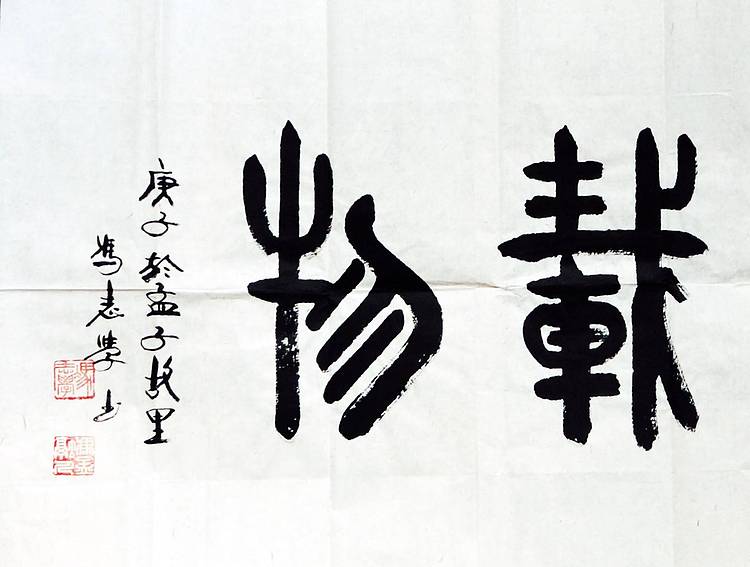 載物
庚子於孟子故里
馮志學书